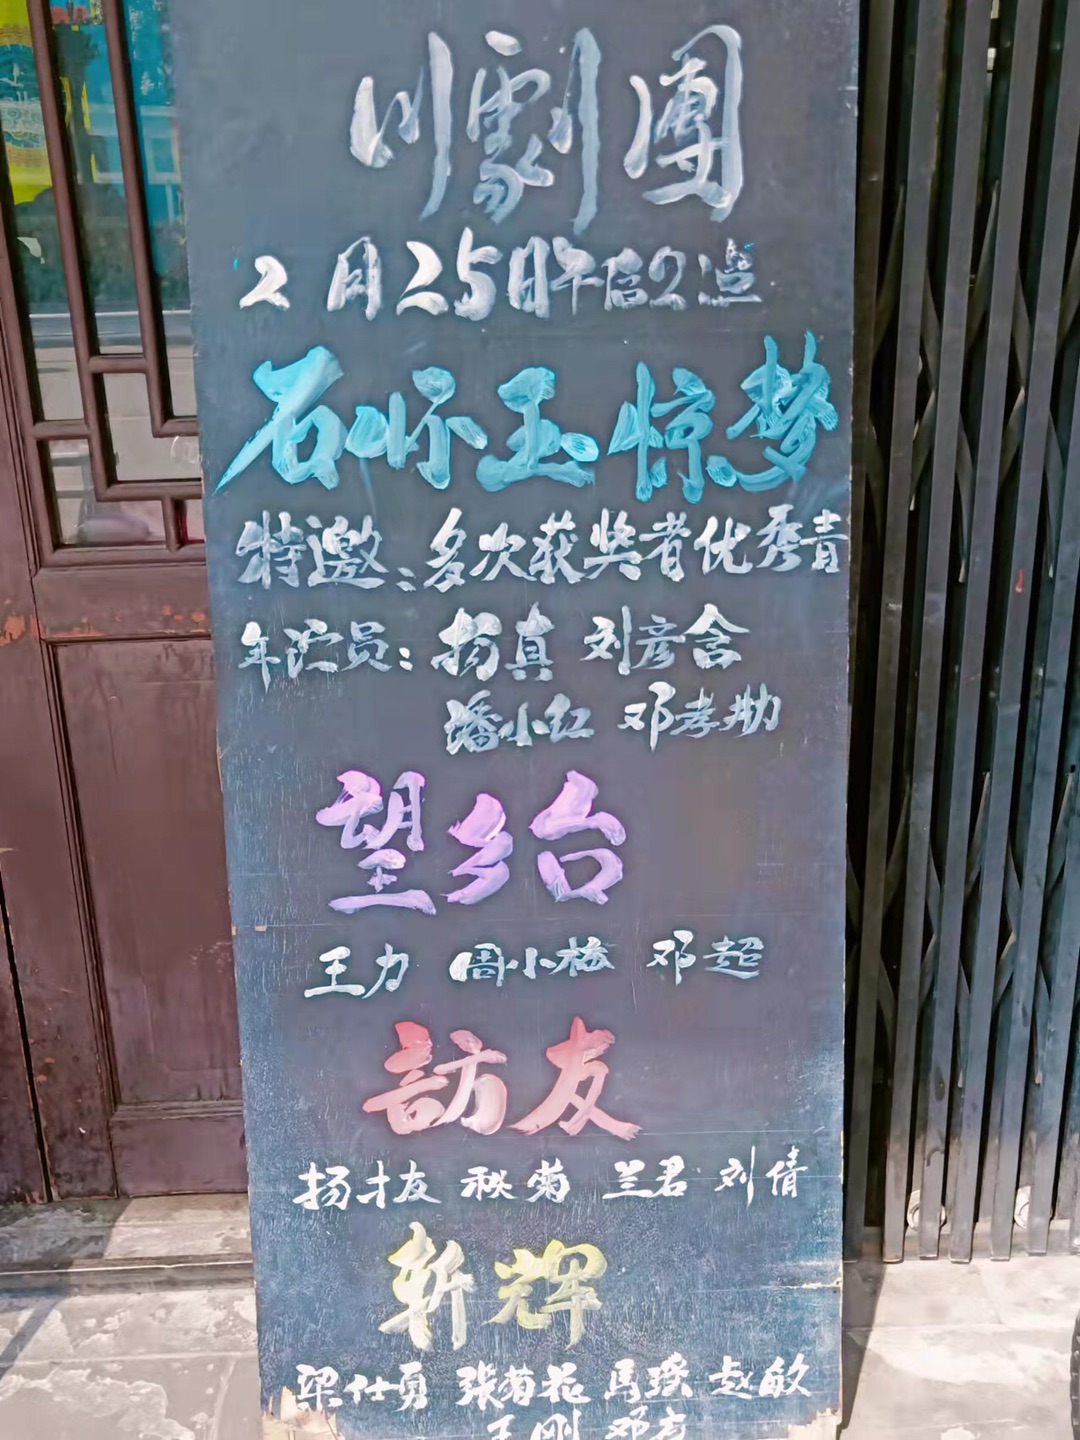 川劇團
2月25日午后2点
石怀玉惊梦
特邀:多次获奖者优秀青
年演员:扬真 刘彦含
潘小红 邓孝勋
望乡台
王力 周小梅 邓超
訪友
扬才友 秋菊 兰君 刘倩
斬輝
梁仕勇 張菊花 馬瑛 赵敏
王刚 邓友